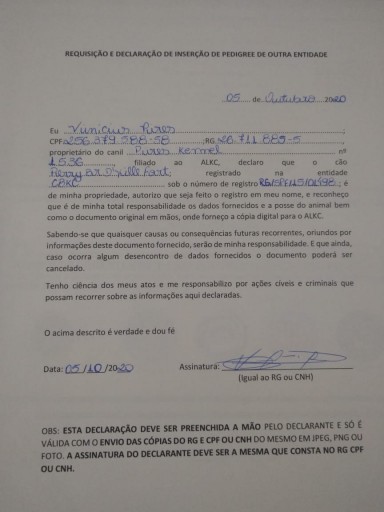 REQUISIÇÃO E DECLARAÇÃO DE INSERÇÃO DE PEDIGREE DE OUTRA ENTIDADE
05 de Outubro 2020
Eu Vinicius Pires ;
CPF 256 379 588-58 ;RG 26.711.885-5 ,
proprietário do canil Pires Kennel nº
1536 , filiado ao ALKC, declaro que o cão
registrado na entidade
CBKC sob o número de registro ; é
de minha propriedade, autorizo que seja feito o registro em meu nome, e reconheço
que é de minha total responsabilidade os dados fornecidos e a posse do animal bem
como o documento original em mãos, onde forneço a cópia digital para o ALKC.
Sabendo-se que quaisquer causas ou consequências futuras recorrentes, oriundos por
informações deste documento fornecido, serão de minha responsabilidade. E que ainda,
caso ocorra algum desencontro de dados fornecidos o documento poderá ser
cancelado.
Tenho ciência dos meus atos e me responsabilizo por ações cíveis e criminais que
possam recorrer sobre as informações aqui declaradas.
O acima descrito é verdade e dou fé
Data: 05/10/2020 Assinatura:
(igual ao RG ou CNH)
OBS: ESTA DECLARAÇÃO DEVE SER PREENCHIDA A MÃO PELO DECLARANTE E SÓ É
VÁLIDA COM O ENVIO DAS CÓPIAS DO RG E CPF OU CNH DO MESMO EM JPEG, PNG OU
FOTO. A ASSINATURA DO DECLARANTE DEVE SER A MESMA QUE CONSTA NO RG CPF
OU CNH.